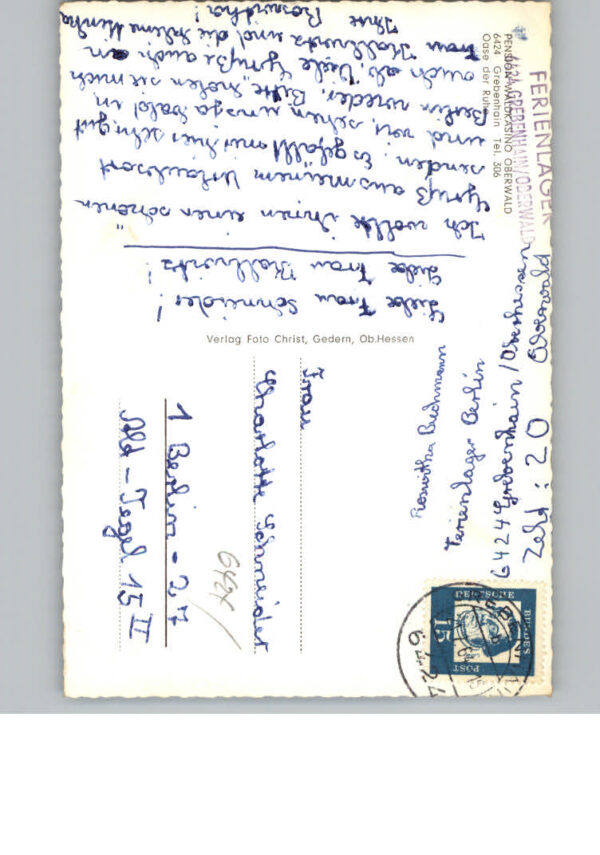 Liebe Frau Schneider!
Liebe Frau Kollwitz!
Ich wollte ihnen einen schönen
Gruß aus meinem Urlaubsort
senden. Es gefällt mir hier sehr gut
und wir sehen uns ja bald in
Berlin wieder. Bitte holen sie mich
auch ab. Viele Grüße auch an
Frau Kollwitz und die
Ihre Roswitha!
PENSION WALDKASINO OBERWALD
6424 Grebenhain Tel. 306
Oase der Ruhe
FERIENLAGER
6424 GREBENHAIN/OBERWALD
Verlag Foto Christ, Gedern, Ob.Hessen
Roswitha Buchmann
Ferienlager Berlin
6424 Grebenhain/Oberhessen
Zelt: 20 Oberwald
Frau
Charlotte Schneider
1 Berlin-27
Alt-Tegel 15 II
6424
DEUTSCHE
BUNDES
POST
15
6424